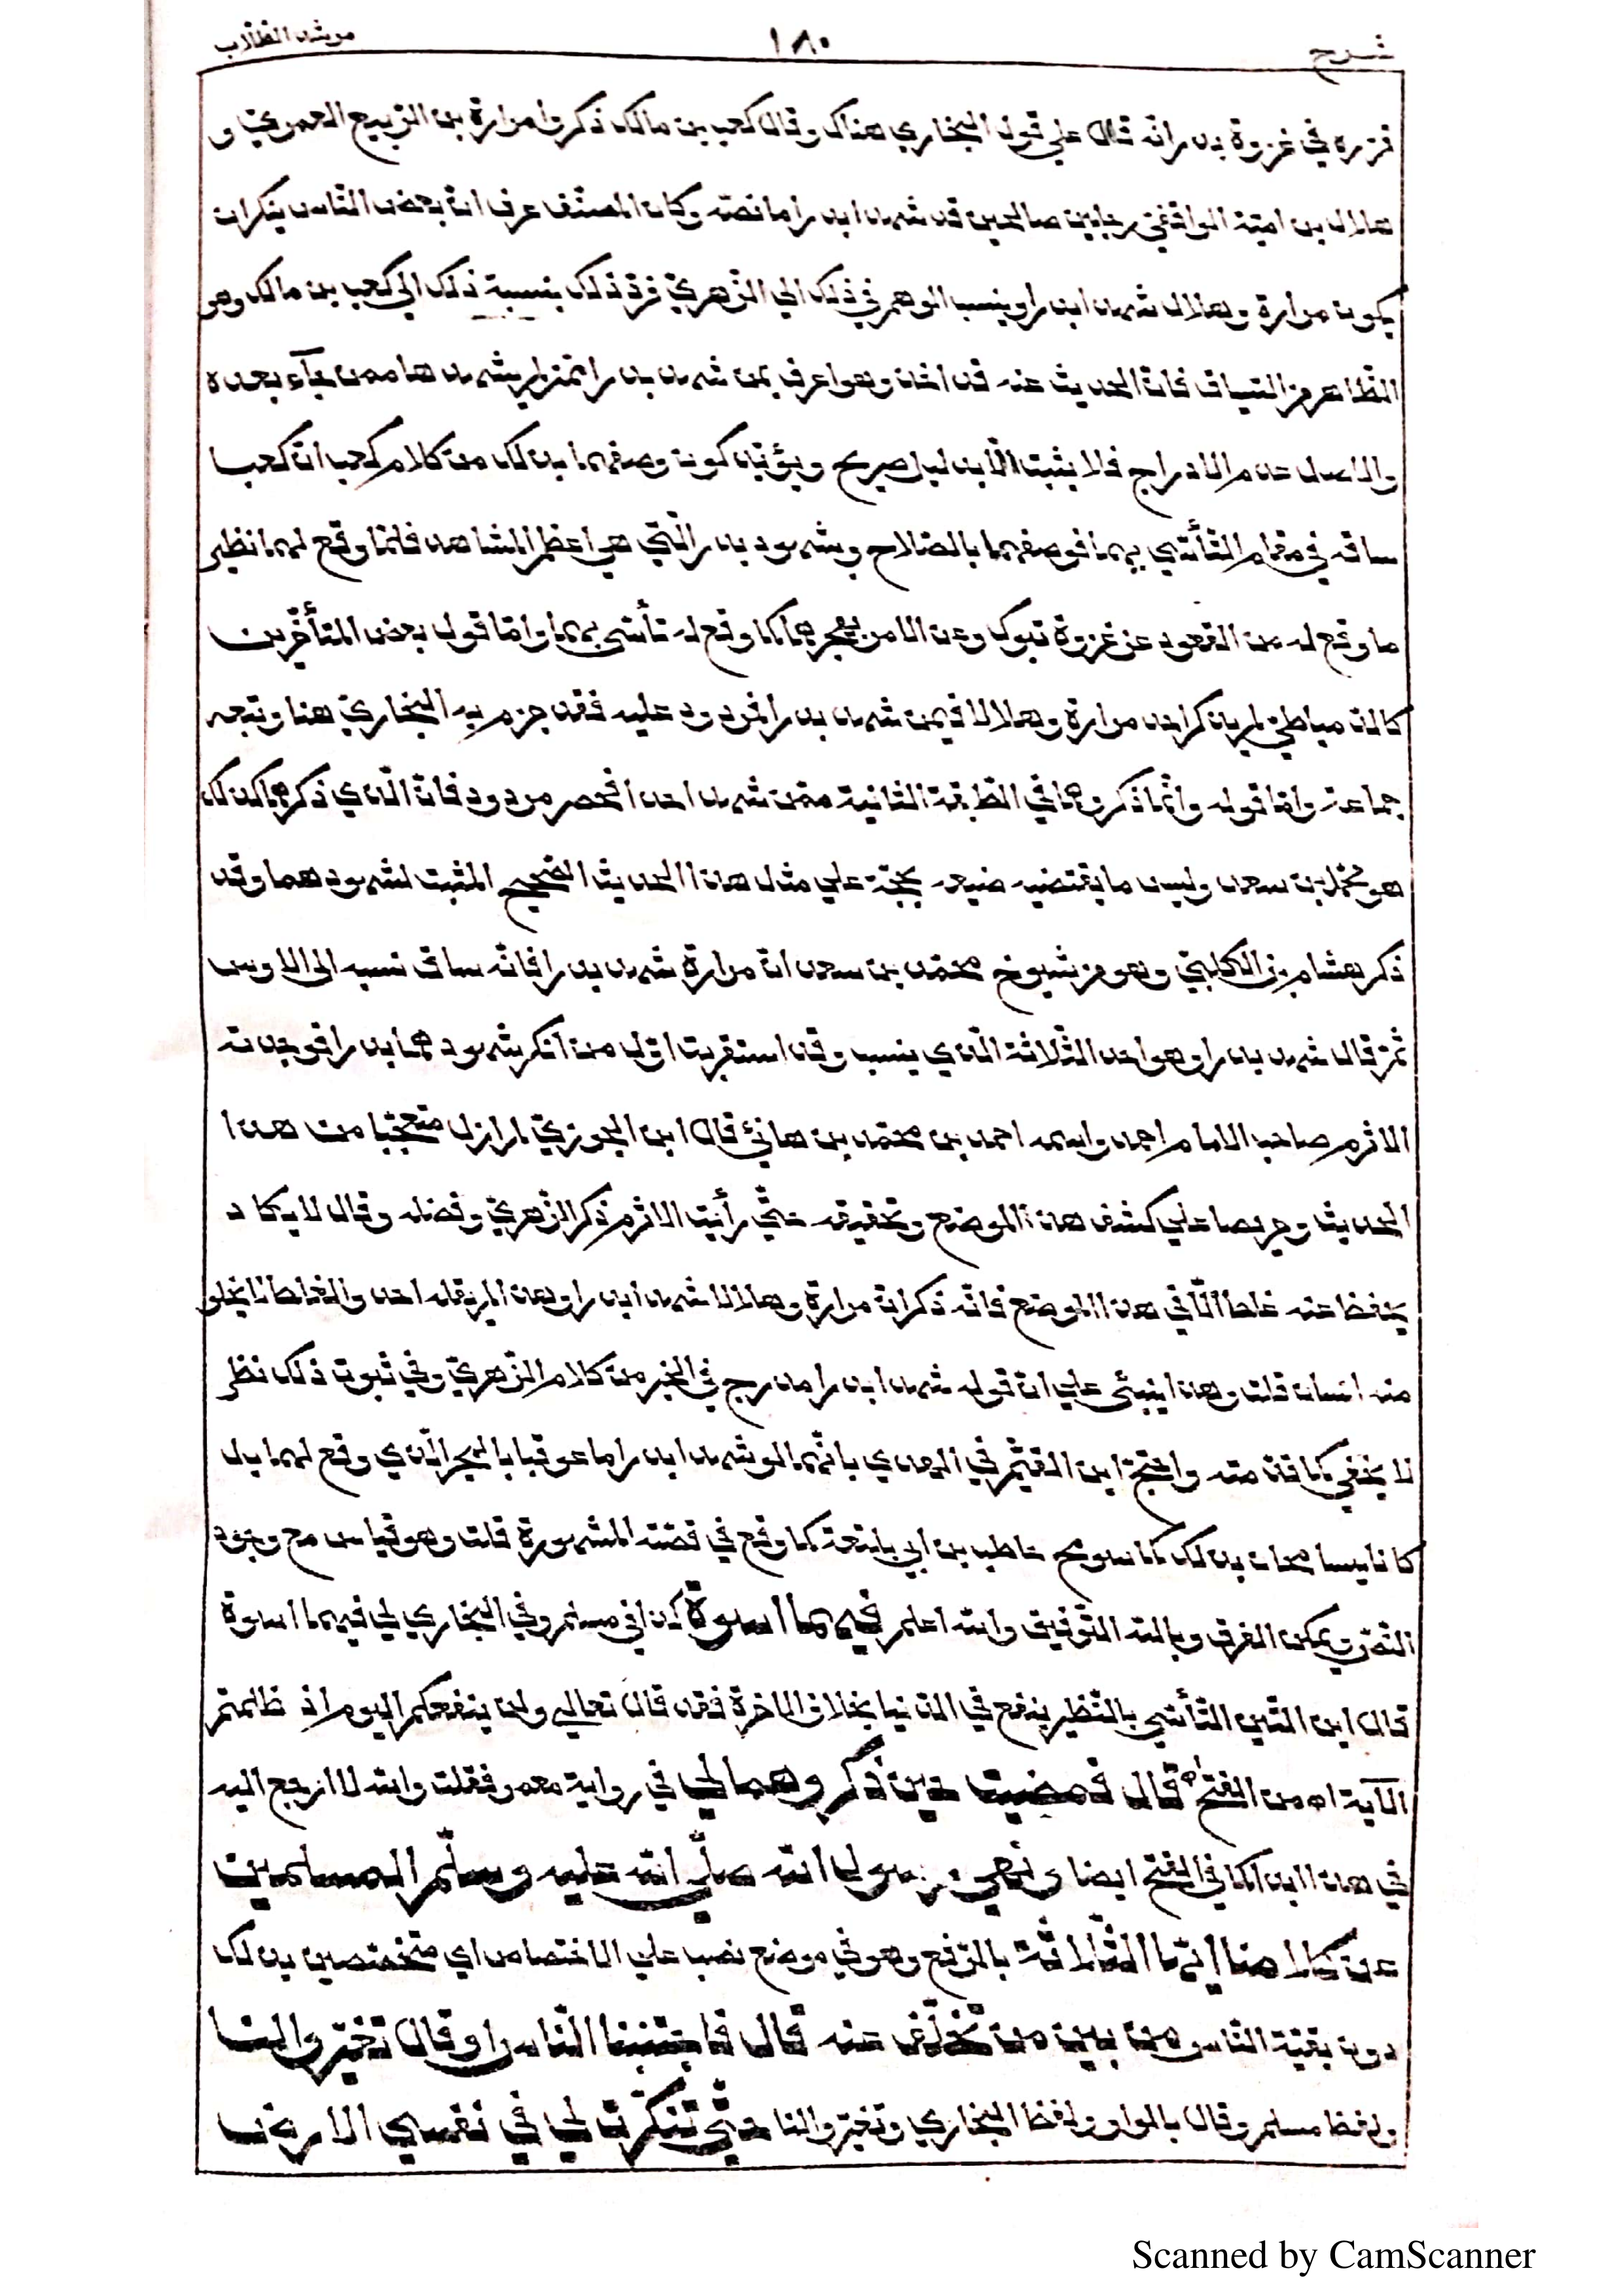 شرح ١٨٠ مرشد الطلاب
قرره في غزوة بدر انه قال على قول البخاري هناك وقال كعب بن مالك ذكروا مرارة بن الربيع العمري و
هلال بن امية الواقفي رجلين صالحين قد شهدا بدرا ما نصه وكان المصنف عرف ان بعض الناس ينكران
يكون مرارة وهلال شهدا بدرا وينسب الوهم في ذلك الي الزهري فرد ذلك بنسبة ذلك الى كعب بن مالك وهو
الظاهر من السياق فان الحديث عنه قد اخذ وهو اعرف بمن شهد بدرا ممن لم يشهدها ممن جاء بعده
والاصل عدم الادراج فلا يثبت الا بدليل صريح ويؤيد كون وصفهما بذلك من كلام كعب ان كعبا
ساقه في مقام التأسي بهما فوصفهما بالصلاح وبشهود بدر التي هي اعظم المشاهد فلما وقع لهما نظير
ما وقع له من القعود عن غزوة تبوك وعن الامر بهجرهما كما وقع له تأسى بهما واما قول بعض المتأخرين
كالدمياطي لم يذكر احد مرارة وهلالا فيمن شهد بدرا فمردود عليه فقد جزم به البخاري هنا وتبعه
جماعة واما قوله وانما ذكروهما في الطبقة الثانية ممن شهد احدا فحصر مردود فان الذي ذكرهما كذلك
هو محمد بن سعد وليس ما يقتضيه صنيعه بحجة علي مثل هذا الحديث الصحيح المثبت لشهودهما وقد
ذكر هشام بن الكلبي وهو من شيوخ محمد بن سعد ان مرارة شهد بدرا فانه ساق نسبه الى الاوس
ثم قال شهد بدرا وهو احد الثلاثة الذي ينسب وقد استقريت اول من انكر شهودهما بدرا فوجدته
الاثرم صاحب الامام احمد واسمه احمد بن محمد بن هانئ قال ابن الجوزي لم ازل متعجبا من هذا
الحديث وحريصا علي كشف هذا الموضع وتحقيقه حتى رأيت الاثرم ذكر الزهري وفضله وقال لا يكاد
يحفظ عنه غلط الا في هذا الموضع فانه ذكر ان مرارة وهلالا شهدا بدرا وهذا لم يقله احد والغلط لا يخلو
منه انسان قلت وهذا ينبئ علي ان قوله شهدا بدرا مدرج في الخبر من كلام الزهري وفي ثبوت ذلك نظر
لا يخفي كما قدمته واحتج ابن القيم في الهدي بانهما لو شهدا بدرا ما عوقبا بالهجر الذي وقع لهما بل
كانا يسامحان بذلك كما سومح حاطب بن ابي بلتعة كما وقع في قصته المشهورة قلت وهو قياس مع وجود
النص ويمكن الفرق وبالله التوفيق والله اعلم فيهما اسوة كذا في مسلم وفي البخاري لي فيهما اسوة
قال ابن التين التأسي بالنظير ينفع في الدنيا بخلاف الاخرة فقد قال تعالى ولن ينفعكم اليوم اذ ظلمتم
الآية اه من الفتح قال فمضيت حين ذكروهما لي في رواية معمر فقلت والله لا ارجع اليه
في هذا ابدا كما في الفتح ايضا ونهى رسول الله صلى الله عليه وسلم المسلمين
عن كلامنا ايها الثلاثة بالرفع وهو في موضع نصب علي الاختصاص اي متخصصين بذلك
دون بقية الناس من بين من تخلف عنه قال فاجتنبنا الناس او قال تغيروا لنا
ولفظ مسلم وقال بالواو ولفظ البخاري وتغيروا لنا حتى تنكرت لي في نفسي الارض
Scanned by CamScanner